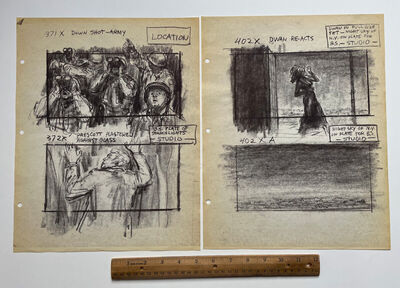 371X DOWN SHOT-ARMY
LOCATION
372X PRESCOTT PLASTERED
AGAINST GLASS
B.G. PLATE OF
SEARCHLIGHTS
-STUDIO-
402X DWAN RE-ACTS
DWAN IN FULL SIZE
SET-NIGHT SKY OF
N.Y. ON PLATE FOR
B.G. -STUDIO-
402 X A
NIGHT SKY OF N.Y.
ON PLATE FOR B.G.
-STUDIO-